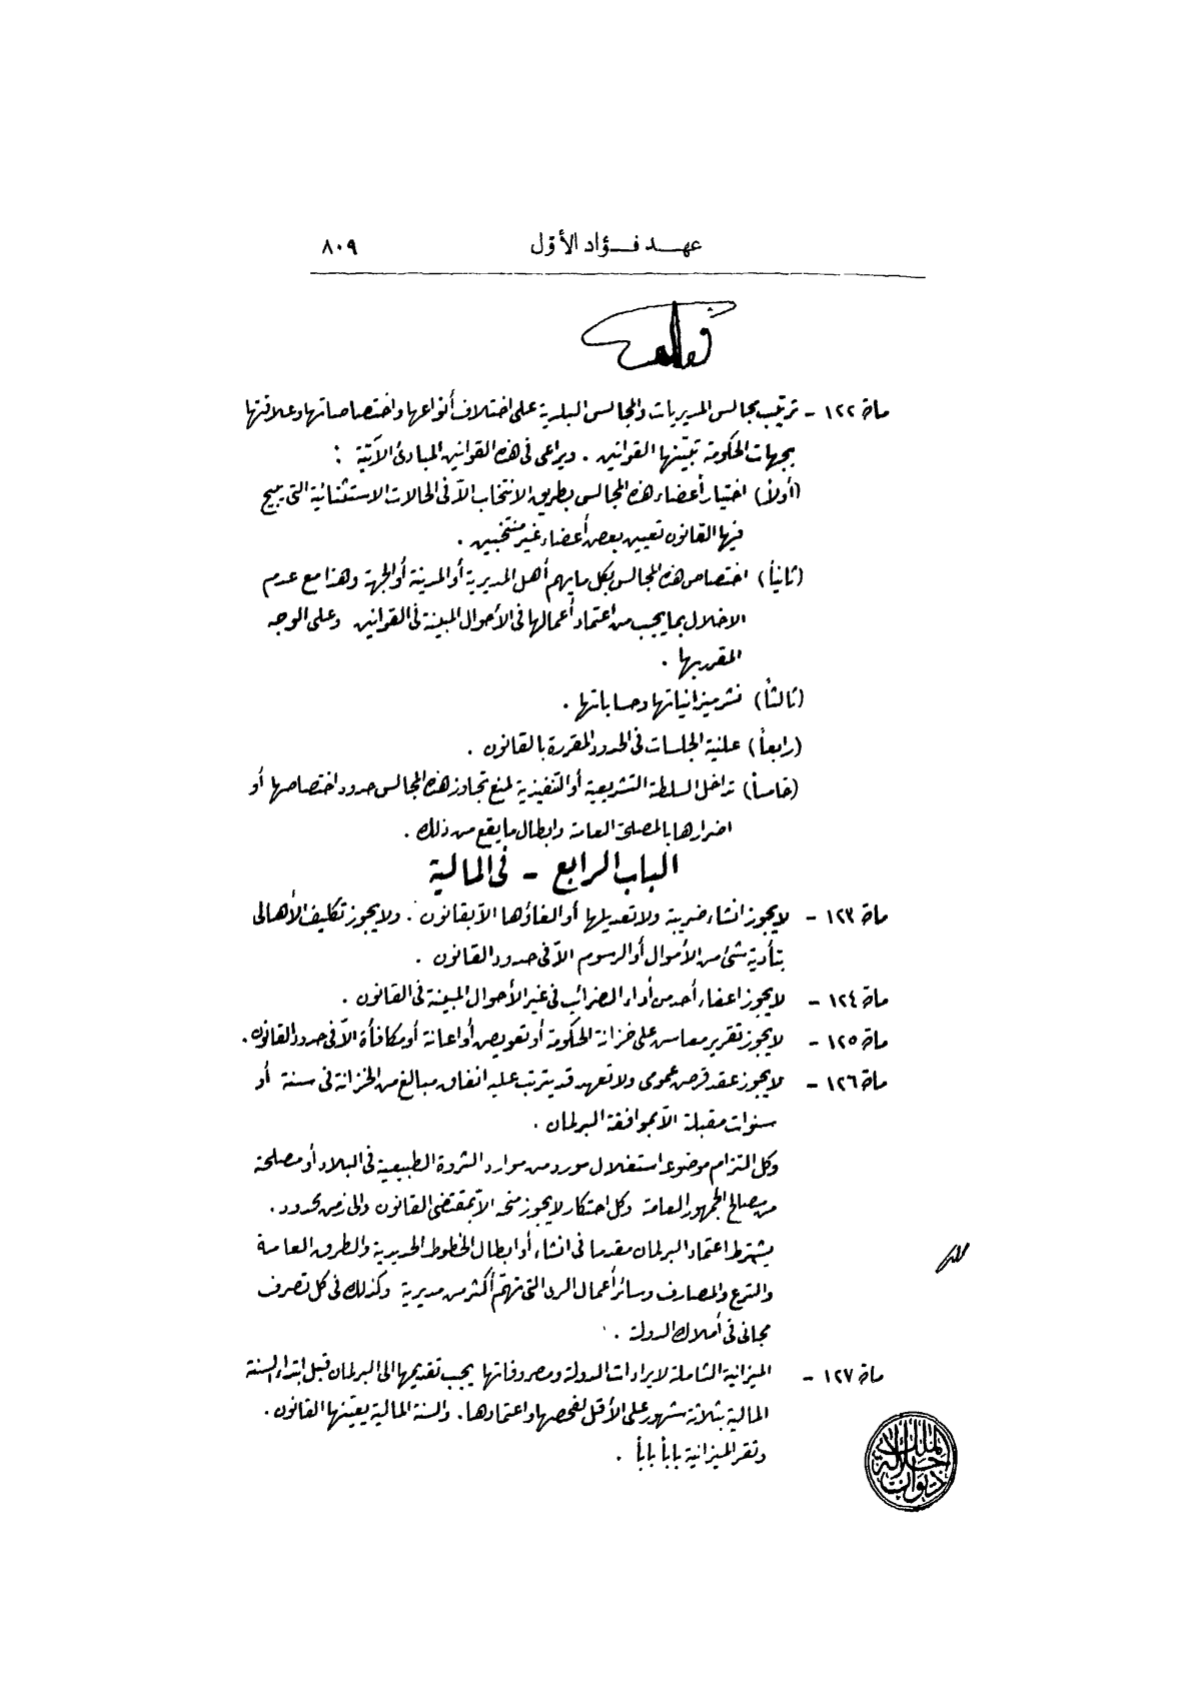 عهد فؤاد الأول ٨٠٩
مادة ١٢٢ - ترتيب مجالس المديريات والمجالس البلدية على اختلاف أنواعها واختصاصاتها وعلاقتها
بجهات الحكومة تبينها القوانين . ويراعى فى هذه القوانين المبادئ الآتية :
(أولاً) اختيار أعضاء هذه المجالس بطريق الانتخاب الاّ فى الحالات الاستثنائية التى يبيح
فيها القانون تعيين بعض أعضاء غير منتخبين .
(ثانياً) اختصاص هذه المجالس بكل ما يهم أهل المديرية أو المدينة أو الجهة وهذا مع عدم
الاخلال بما يجب من اعتماد أعمالها فى الأحوال المبينة فى القوانين وعلى الوجه
المقرر بها .
(ثالثاً) نشر ميزانياتها وحساباتها .
(رابعاً) علنية الجلسات فى الحدود المقررة بالقانون .
(خامساً) تداخل السلطة التشريعية أو التنفيذية لمنع تجاوز هذه المجالس حدود اختصاصها أو
اضرارها بالمصلحة العامة وابطال ما يقع من ذلك .
الباب الرابع - فى المالية
مادة ١٢٣ - لا يجوز انشاء ضريبة ولا تعديلها أو الغاؤها الاّ بقانون . ولا يجوز تكليف الأهالى
بتأدية شئ من الأموال أو الرسوم الاّ فى حدود القانون .
مادة ١٢٤ - لا يجوز اعفاء أحد من أداء الضرائب فى غير الأحوال المبينة فى القانون .
مادة ١٢٥ - لا يجوز تقرير معاش على خزانة الحكومة أو تعويض أو اعانة أو مكافأة الاّ فى حدود القانون .
مادة ١٢٦ - لا يجوز عقد قرض عمومى ولا تعهد قد يترتب عليه انفاق مبالغ من الخزانة فى سنة أو
سنوات مقبلة الاّ بموافقة البرلمان .
وكل التزام موضوعه استغلال مورد من موارد الثروة الطبيعية فى البلاد أو مصلحة
من مصالح الجمهور العامة وكل احتكار لا يجوز منحه الاّ بمقتضى القانون والى زمن محدود .
يشترط اعتماد البرلمان مقدما فى انشاء أو ابطال الخطوط الحديدية والطرق العامة
والترع والمصارف وسائر أعمال الرى التى تهمّ أكثر من مديرية وكذلك فى كل تصرف
مجانى فى أملاك الدولة .
مادة ١٢٧ - الميزانية الشاملة لايرادات الدولة ومصروفاتها يجب تقديمها الى البرلمان قبل ابتداء السنة
المالية بثلاثة شهور على الأقل لفحصها واعتمادها . والسنة المالية يعيّنها القانون .
وتقر الميزانية باباً باباً .
ديوان جلالة الملك